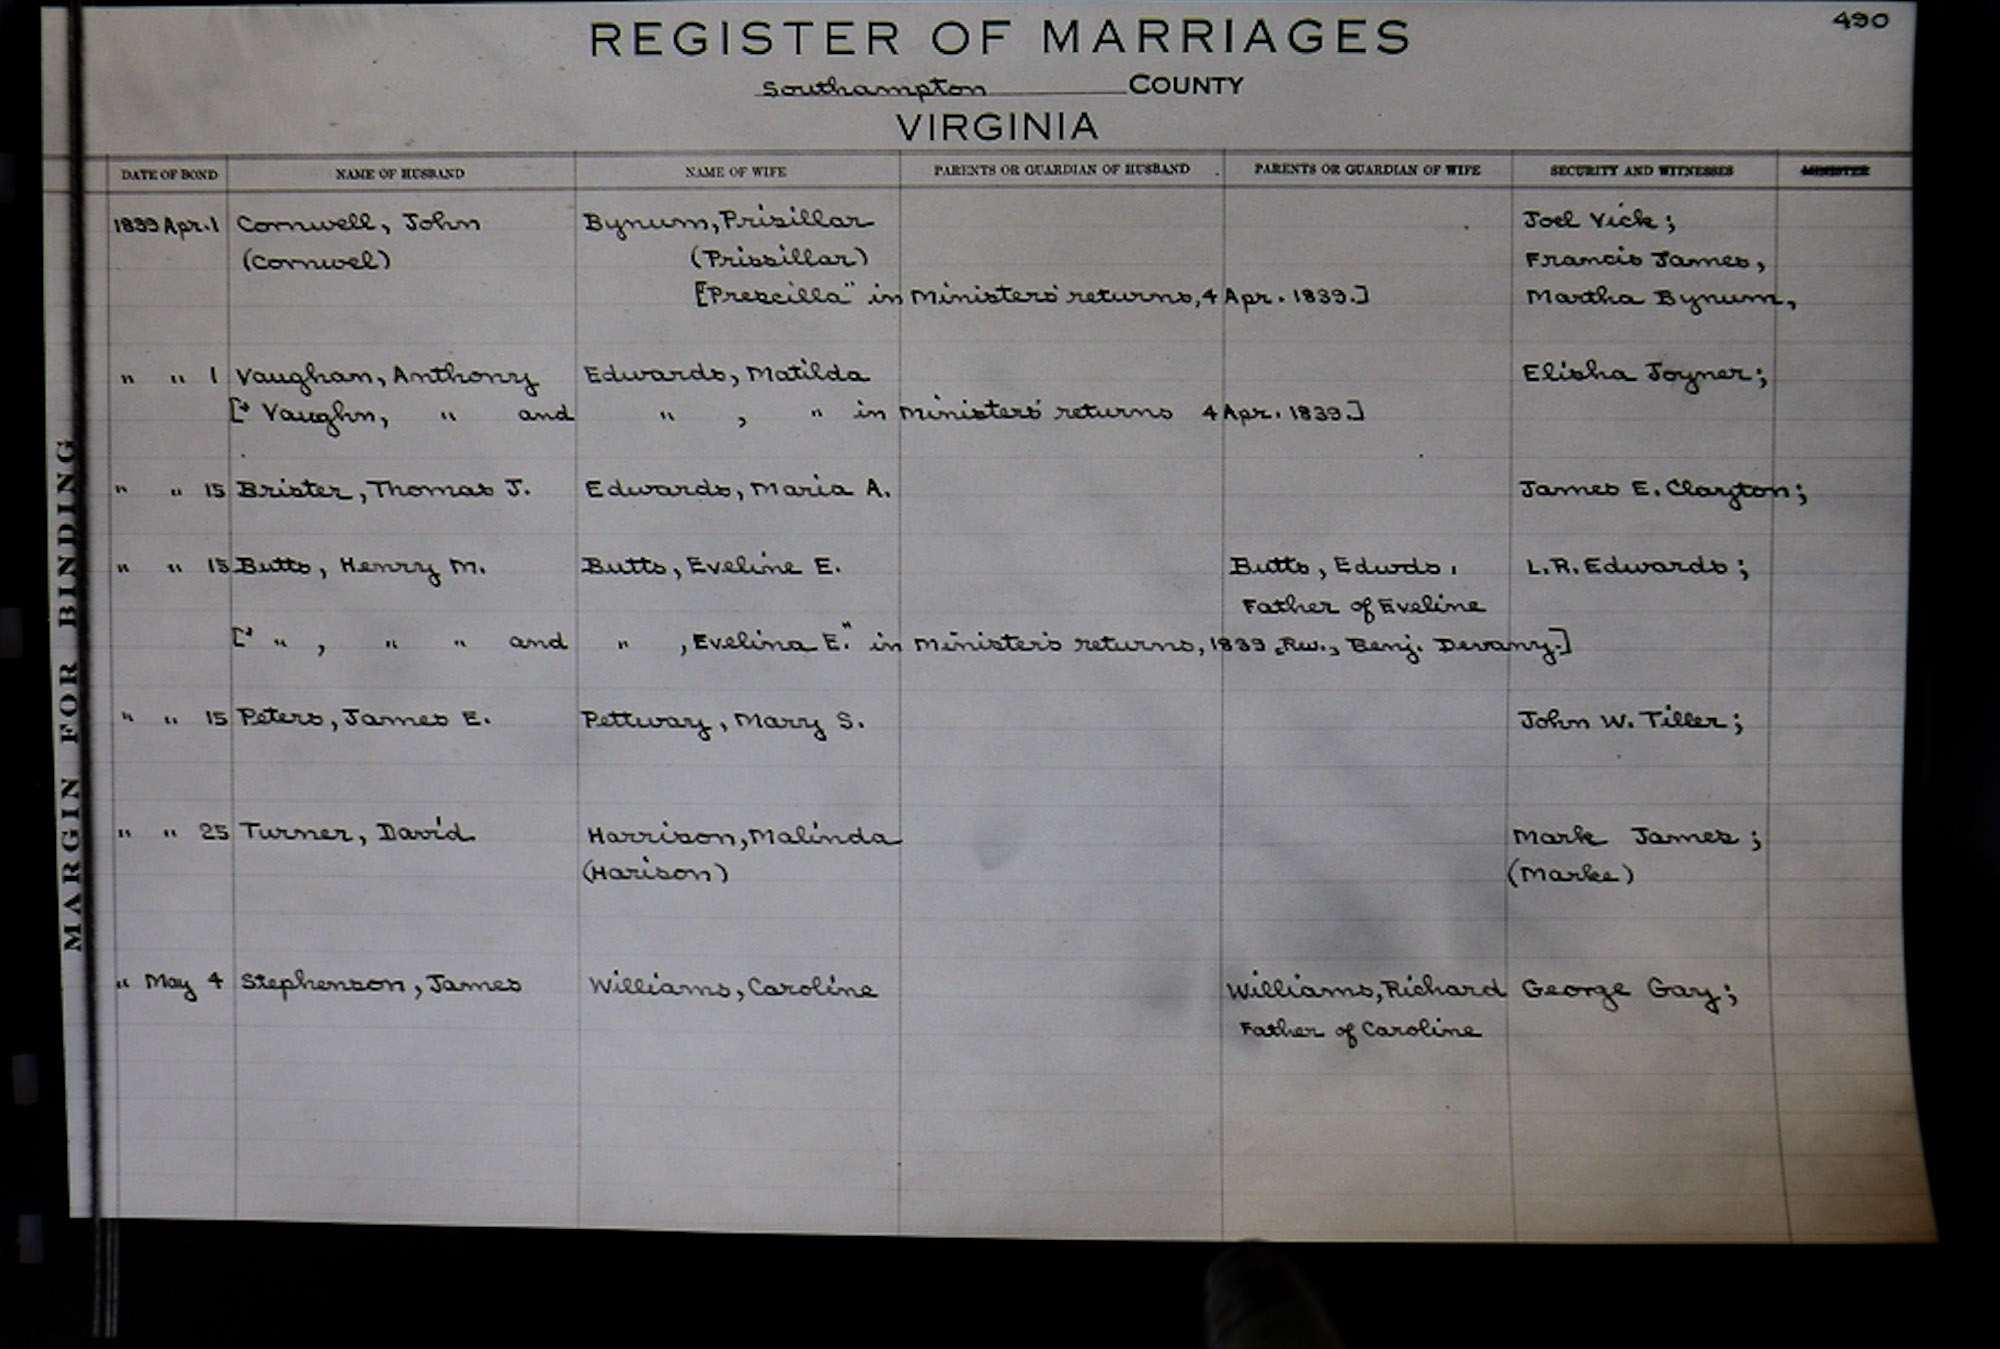 490
REGISTER OF MARRIAGES
Southampton COUNTY
VIRGINIA
DATE OF BOND NAME OF HUSBAND NAME OF WIFE PARENTS OR GUARDIAN OF HUSBAND PARENTS OR GUARDIAN OF WIFE SECURITY AND WITNESSES MINISTER
1839 Apr. 1 Cornwell, John Bynum, Prisillar Joel Vick;
(Cornwel) (Prissillar) Francis James,
["Prescilla" in Ministers' returns, 4 Apr. 1839.] Martha Bynum,
" " 1 Vaughan, Anthony Edwards, Matilda Elisha Joyner;
[" Vaughn, " and " , " in Ministers' returns 4 Apr. 1839.]
" " 15 Brister, Thomas J. Edwards, Maria A. James E. Clayton;
" " 15 Butts, Henry M. Butts, Eveline E. Butts, Edwds. L.R. Edwards;
Father of Eveline
[" " , " " and " , Evelina E." in Minister's returns, 1839, Rev., Benj. Devany.]
" " 15 Peters, James E. Pettway, Mary S. John W. Tiller;
" " 25 Turner, David Harrison, Malinda Mark James;
(Harison) (Marke)
" May 4 Stephenson, James Williams, Caroline Williams, Richard George Gay;
Father of Caroline
MARGIN FOR BINDING